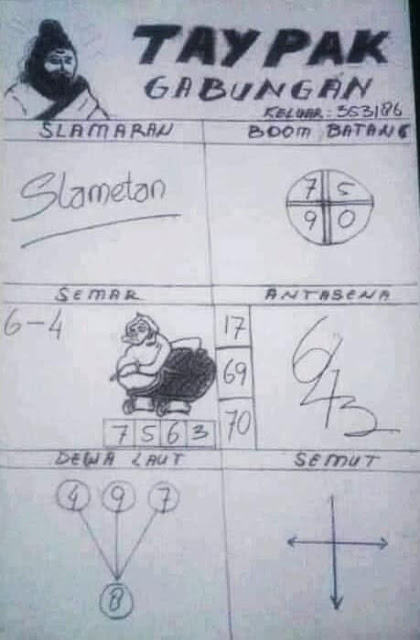 TAYPAK
GABUNGAN
KELUAR: 353186
SLAMARAN
BOOM BATANG
Slametan
7 5
9 0
SEMAR
ANTASENA
6-4
17
69
70
7 5 6 3
643
DEWA LAUT
SEMUT
4 9 7
8